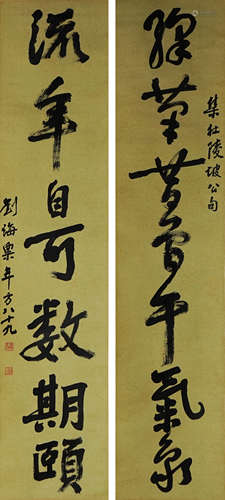 綵筆昔曾干氣象
集杜陵坡公句
流年自可數期頤
劉海粟年方八十九